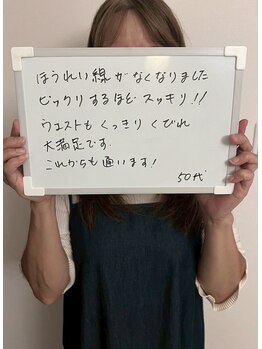 ほうれい線がなくなりました
ビックリするほど スッキリ!!
ウエストも くっきり くびれ
大満足です.
これからも通います!
50代